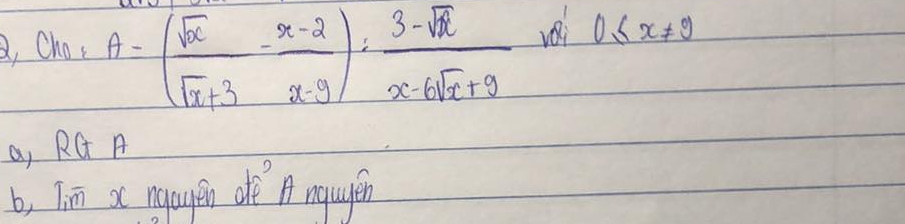 2, Cho: A = (√x/(√x+3) - (x-2)/(x-9)) : (3-√x)/(x-6√x+9) với 0 ≤ x ≠ 9
a, RG A
b, Tìm x nguyên để A nguyên